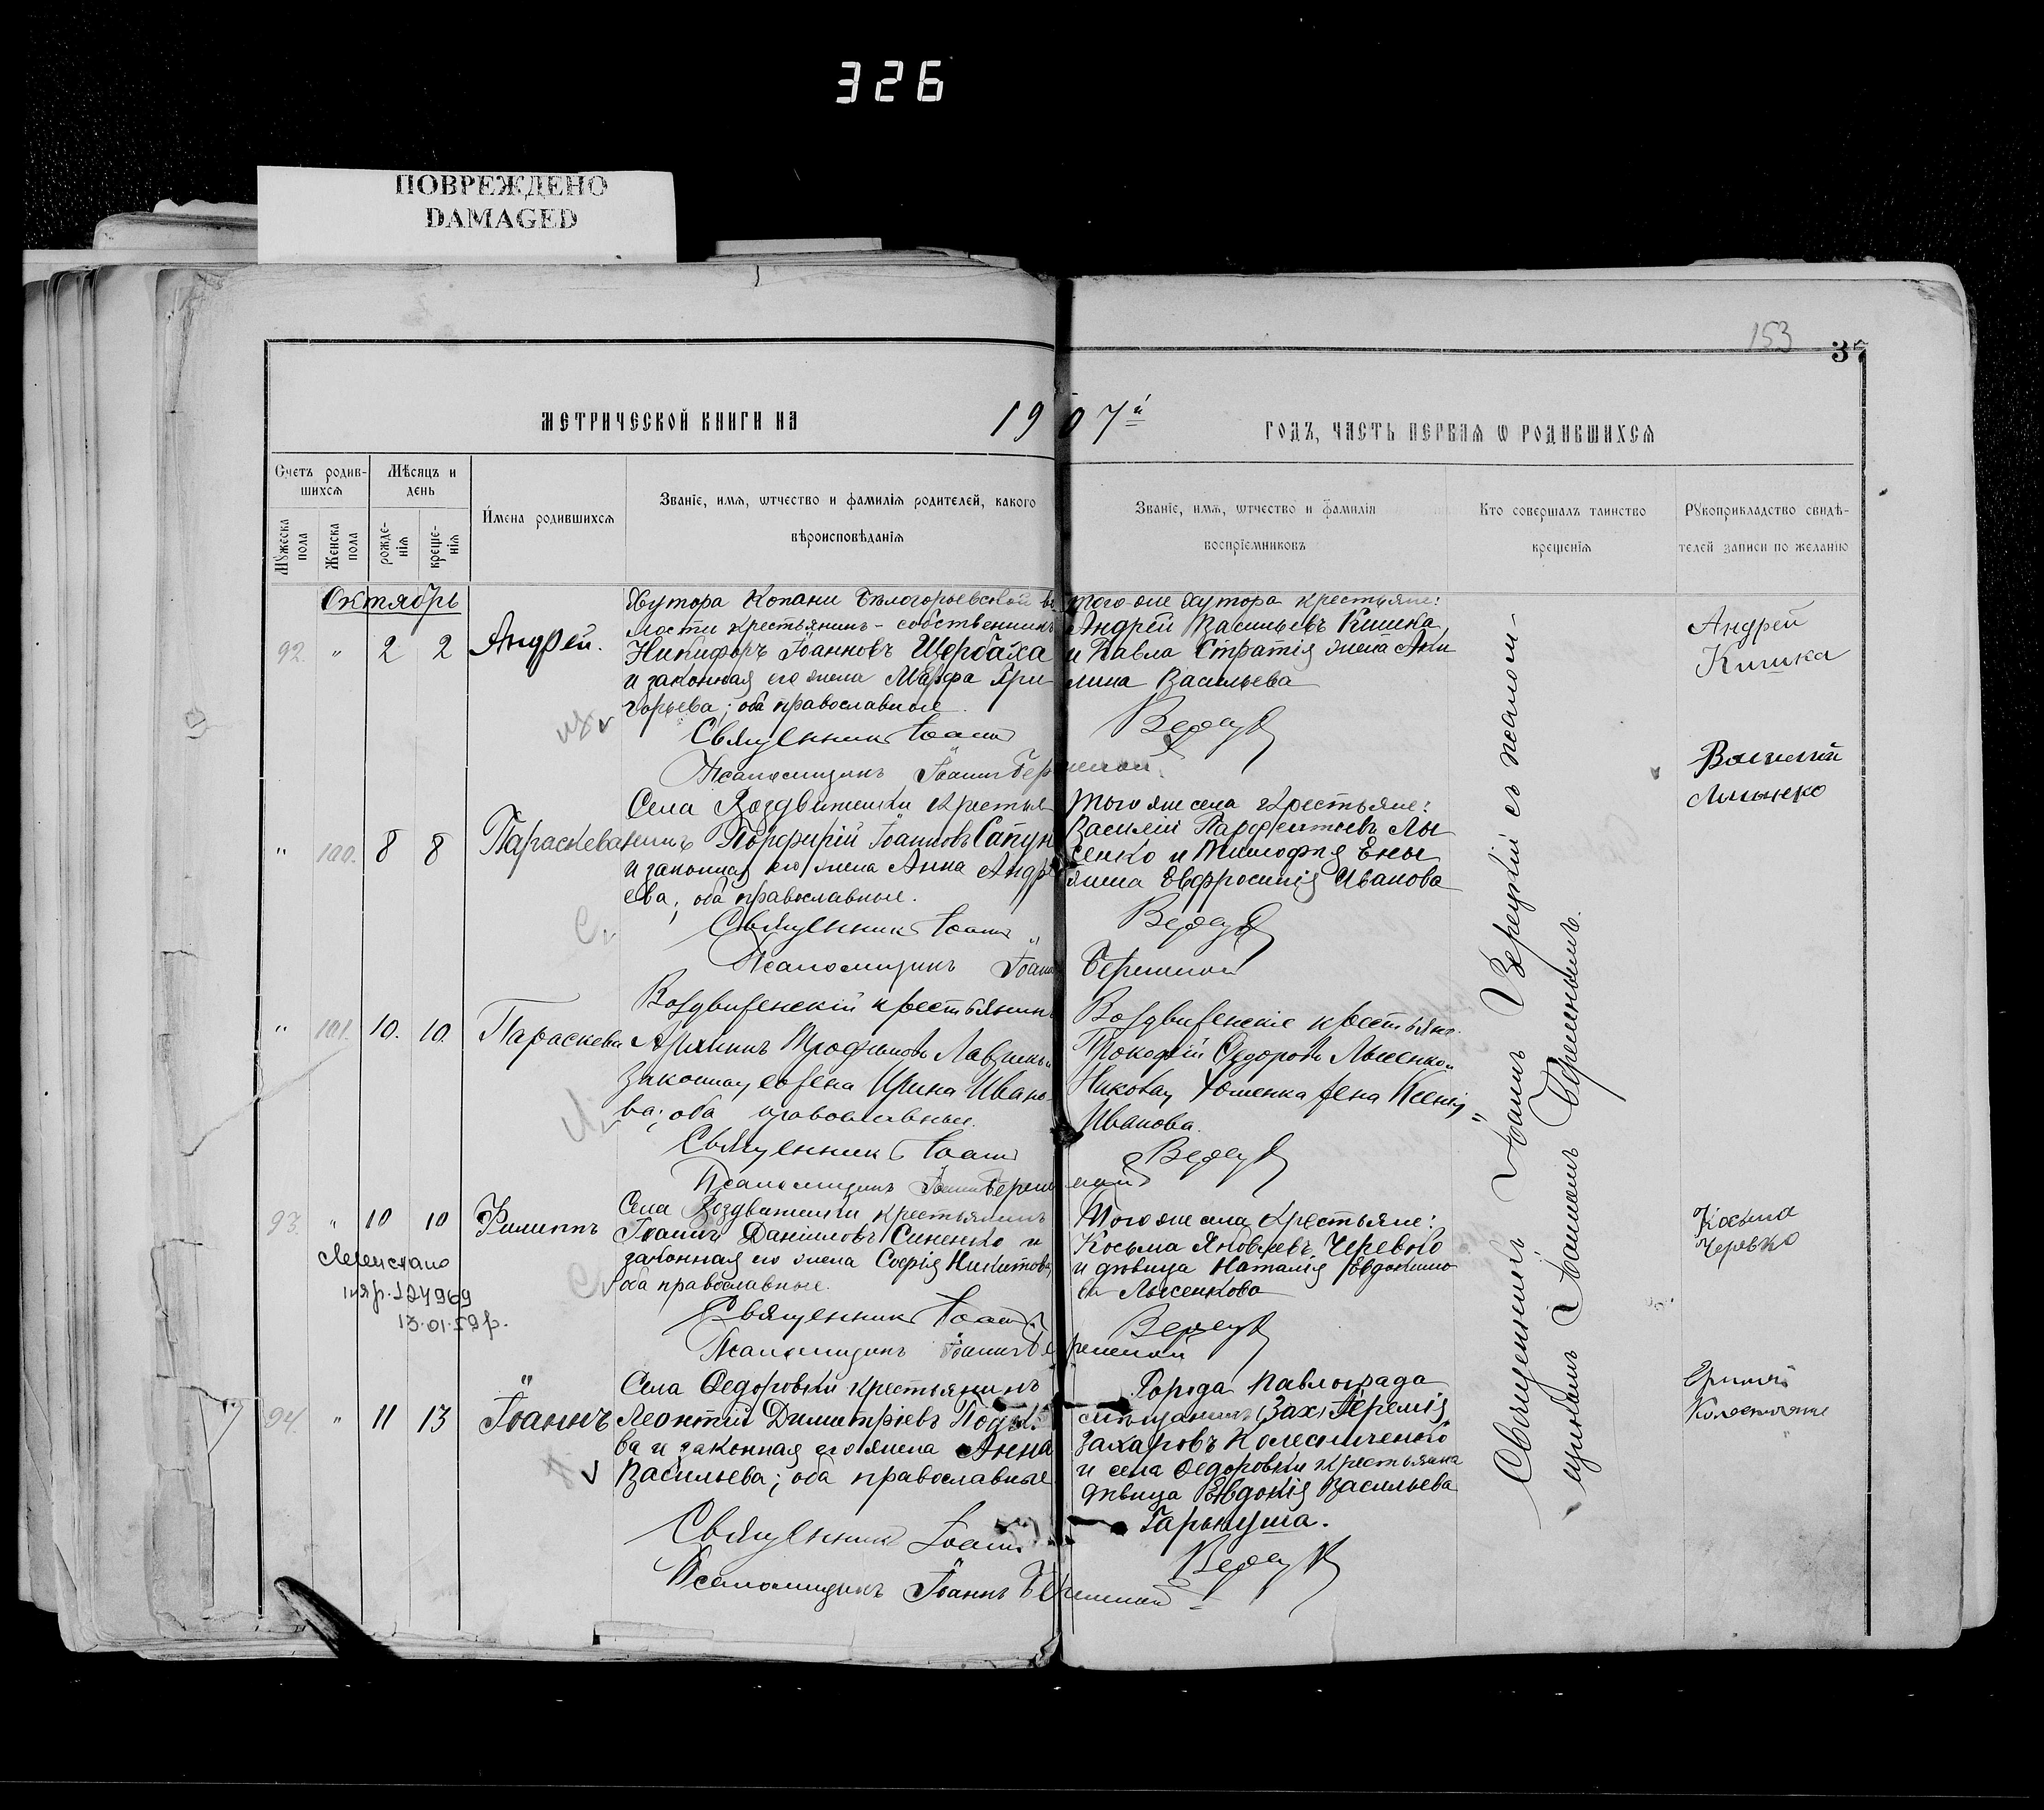 326
ПОВРЕЖДЕНО
DAMAGED
153
37
МЕТРИЧЕСКОЙ КНИГИ НА 1907й ГОДЪ, ЧАСТЬ ПЕРВАѦ Ѡ РОДИВШИХСѦ
Счетъ родив-
шихсѧ
Мѣсяцъ и
день
Мꙋжеска
пола
Женска
пола
рожде-
нїѧ
креще-
нїѧ
Имена родившихсѧ
Званїе, имѧ, ѡтчество и фамилїѧ родителей, какого
вѣроисповѣданїѧ
Званїе, имѧ, ѡтчество и фамилїѧ
воспрїемниковъ
Кто совершалъ таинство
крещенїѧ
Рꙋкоприкладство свидѣ-
телей записи по желанїю
Октябрь
92. " 2 2 Андрей.
Хутора Копани Бѣлогорьевской во
лости крестьянинъ-собственникъ
Никифоръ Іоанновъ Щербаха
и законная его жена Марфа Гри
горьева; оба православные.
Священникъ Іоаннъ
Псаломщикъ Іоаннъ
того-же хутора крестьяне:
Андрей Васильевъ Кишка
и Павла жена Аки
лина Васильева
Андрей
Кишка
" 100. 8 8 Параскева
Села Воздвиженки крестья
нинъ Порфирій Іоанновъ Сапун
и законная его жена Анна Андре
ева; оба православные.
Священникъ Іоаннъ
Псаломщикъ Іоаннъ
того же села крестьяне:
Василій Парфентьевъ Лы
сенко и Тимофея
жена Евфросинія Иванова
Василій
Лысенко
" 101. 10. 10. Параскева
Воздвиженскій крестьянинъ
Трофимовъ
законная его жена Ирина Ивано
ва; оба православные.
Священникъ Іоаннъ
Псаломщикъ Іоаннъ
Воздвиженскіе крестьяне:
Прокофій Федоровъ Лысенко и
Николая жена Ксенія
Иванова.
93. " 10 10 Филиппъ
Села Воздвиженки крестьянинъ
Іоаннъ Даніиловъ Синенко и
законная его жена Софія Никитова,
оба православные.
Священникъ Іоаннъ
Псаломщикъ Іоаннъ
Того же села крестьяне:
Косьма Яковлевъ Черевко
и дѣвица Наталія Евдокимо
ва Лысенкова
Косьма
Черевко
124969
13.01.59р.
94. " 11 13 Іоаннъ
Села Федоровки крестьянинъ
Леонтій Димитріевъ
ва и законная его жена Анна
Васильева; оба православные
Священникъ Іоаннъ
Псаломщикъ Іоаннъ
Города Павлограда
мѣщанинъ (Зах) Іеремія
Захаровъ Колесниченко
и села Федоровки крестьянка
дѣвица Евдокія Васильева
Гаркуша.
Священникъ Іоаннъ съ псалом-
щикомъ Іоанномъ